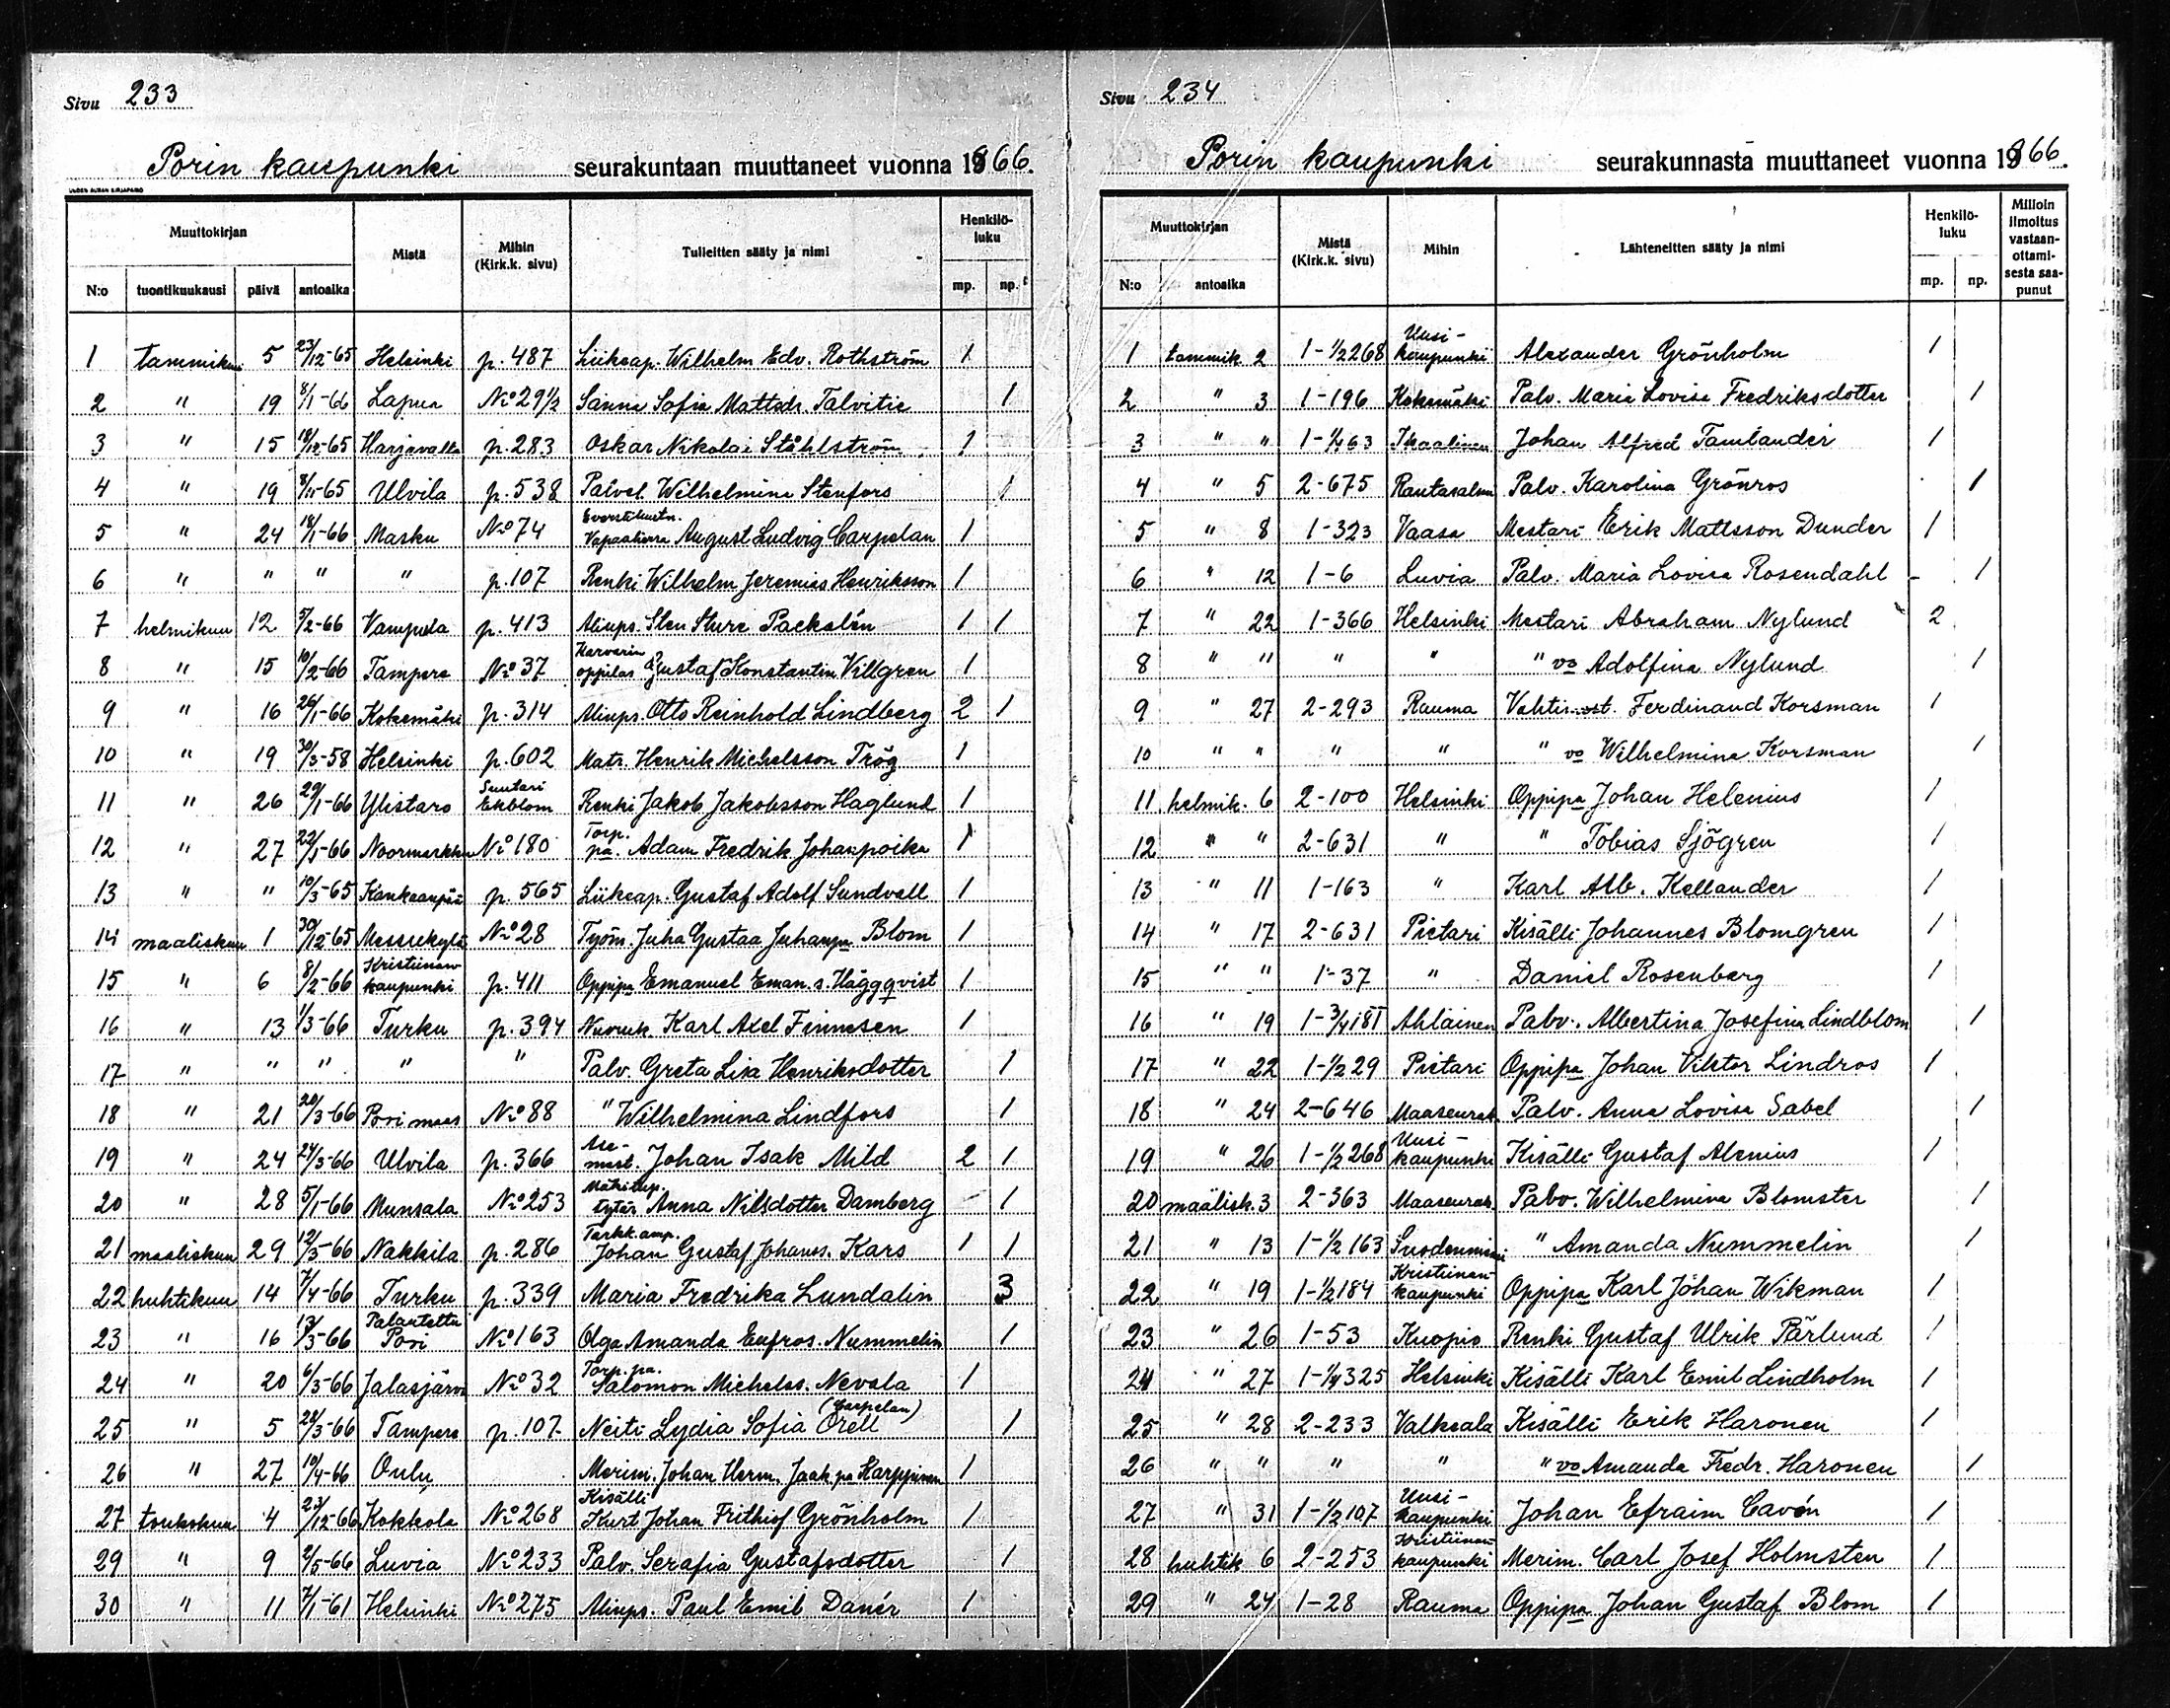 Sivu 233
Porin kaupunki seurakuntaan muuttaneet vuonna 1866.
UUDEN AURAN KIRJAPAINO
Muuttokirjan | Mistä | Mihin (Kirk.k. sivu) | Tulleitten sääty ja nimi | Henkilöluku
N:o | tuontikuukausi | päivä | antoaika | mp. | np.
1 tammikuu 5 23/12-65 Helsinki p. 487 Liikeap. Wilhelm Edv. Rothström 1
2 " 19 8/1-66 Lapua No 29 1/2 Sanna Sofia Mattsdr. Talvitie 1
3 " 15 18/12-65 Harjavalta p. 283 Oskar Nikolai Ståhlström 1
4 " 19 8/11-65 Ulvila p. 538 Palvel. Wilhelmina Stenfors 1
5 " 24 18/1-66 Masku No 74 Everstiluutn. Vapaaherra August Ludvig Carpelan 1
6 " " " " p. 107 Renki Wilhelm Jeremias Henriksson 1
7 helmikuu 12 5/2-66 Vampula p. 413 Aliups. Sten Sture Packalén 1 1
8 " 15 10/2-66 Tampere No 37 Karvarin oppilas Gustaf Konstantin Villgren 1
9 " 16 26/1-66 Kokemäki p. 314 Aliups. Otto Reinhold Lindberg 2 1
10 " 19 30/3-58 Helsinki p. 602 Matr. Henrik Michelsson Trög 1
11 " 26 29/1-66 Ylistaro Suutari Ekblom Renki Jakob Jakobsson Haglund 1
12 " 27 22/1-66 Noormarkku No 180 Torp. pa. Adam Fredrik Johanpoika 1
13 " " 10/3-65 Kankaanpää p. 565 Liikeap. Gustaf Adolf Sundvall 1
14 maaliskuu 1 30/12-65 Messukylä No 28 Työm. Juha Gustaa Juhanpa Blom 1
15 " 6 8/2-66 Kristiinankaupunki p. 411 Oppipa Emanuel Eman. s. Häggqvist 1
16 " 13 1/3-66 Turku p. 394 Nuoruk. Karl Axel Finnesen 1
17 " " " " " Palv. Greta Lisa Henriksdotter 1
18 " 21 20/3-66 Pori maas No 88 " Wilhelmina Lindfors 1
19 " 24 24/3-66 Ulvila p. 366 Ase-mest. Johan Isak Mild 2 1
20 " 28 5/1-66 Munsala No 253 Mäkitup. tytär Anna Nilsdotter Damberg 1
21 maaliskuu 29 12/3-66 Nakkila p. 286 Tarkk.amp. Johan Gustaf Johanss. Kars 1 1
22 huhtikuu 14 7/4-66 Turku p. 339 Maria Fredrika Lundalin 3
23 " 16 13/3-66 Palautettu Pori No 163 Olga Amanda Eufros. Nummelin 1
24 " 20 6/3-66 Jalasjärvi No 32 Torp. pa. Salomon Michelss. Nevala 1
25 " 5 28/3-66 Tampere p. 107 Neiti Lydia Sofia Orell (Carpelan) 1
26 " 27 10/4-66 Oulu Merim. Johan Herm. Jaak.pa Karppinen 1
27 toukokuu 4 23/12-66 Kokkola No 268 Kisälli Kurt Johan Frithiof Grönholm 1
29 " 9 2/5-66 Luvia No 233 Palv. Serafia Gustafsdotter 1
30 " 11 7/1-61 Helsinki No 275 Aliups. Paul Emil Danér 1
Sivu 234
Porin kaupunki seurakunnasta muuttaneet vuonna 1866.
Muuttokirjan | Mistä (Kirk.k. sivu) | Mihin | Lähteneitten sääty ja nimi | Henkilöluku | Milloin ilmoitus vastaanottamisesta saapunut
N:o | antoaika | mp. | np.
1 tammik. 2 1-1/2 268 Uusi-kaupunki Alexander Grönholm 1
2 " 3 1-196 Kokemäki Palv. Maria Lovisa Fredriksdotter 1
3 " " 1-1/4 63 Ikaalinen Johan Alfred Tamlander 1
4 " 5 2-675 Rantasalmi Palv. Karolina Grönros 1
5 " 8 1-323 Vaasa Mestari Erik Mattsson Dunder 1
6 " 12 1-6 Luvia Palv. Maria Lovisa Rosendahl - 1
7 " 22 1-366 Helsinki Mestari Abraham Nylund 2
8 " " " " " vo Adolfina Nylund 1
9 " 27 2-293 Rauma Vahtim. Ferdinand Korsman 1
10 " " " " " vo Wilhelmina Korsman 1
11 helmik. 6 2-100 Helsinki Oppipa Johan Helenius 1
12 " " 2-631 " " Tobias Sjögren 1
13 " 11 1-163 " Karl Alb. Kellander 1
14 " 17 2-631 Pietari Kisälli Johannes Blomgren 1
15 " " 1-37 " Daniel Rosenberg 1
16 " 19 1-3/4 181 Ahlainen Palv. Albertina Josefina Lindblom 1
17 " 22 1-1/2 29 Pietari Oppipa Johan Viktor Lindros 1
18 " 24 2-646 Maaseurak. Palv. Anna Lovisa Sabel 1
19 " 26 1-1/2 268 Uusi-kaupunki Kisälli Gustaf Alenius 1
20 maalisk. 3 2-363 Maaseurak. Palv. Wilhelmina Blomster 1
21 " 13 1-1/2 163 Suodenniemi " Amanda Nummelin 1
22 " 19 1-1/2 184 Kristiinan-kaupunki Oppipa Karl Johan Wikman 1
23 " 26 1-53 Kuopio Renki Gustaf Ulrik Pärlund 1
24 " 27 1-1/4 325 Helsinki Kisälli Karl Emil Lindholm 1
25 " 28 2-233 Valkeala Kisälli Erik Haronen 1
26 " " " " " vo Amanda Fredr. Haronen 1
27 " 31 1-1/2 107 Uusi-kaupunki Johan Efraim Cavén 1
28 huhtik 6 2-253 Kristiinan-kaupunki Merim. Carl Josef Holmsten 1
29 " 24 1-28 Rauma Oppipa Johan Gustaf Blom 1